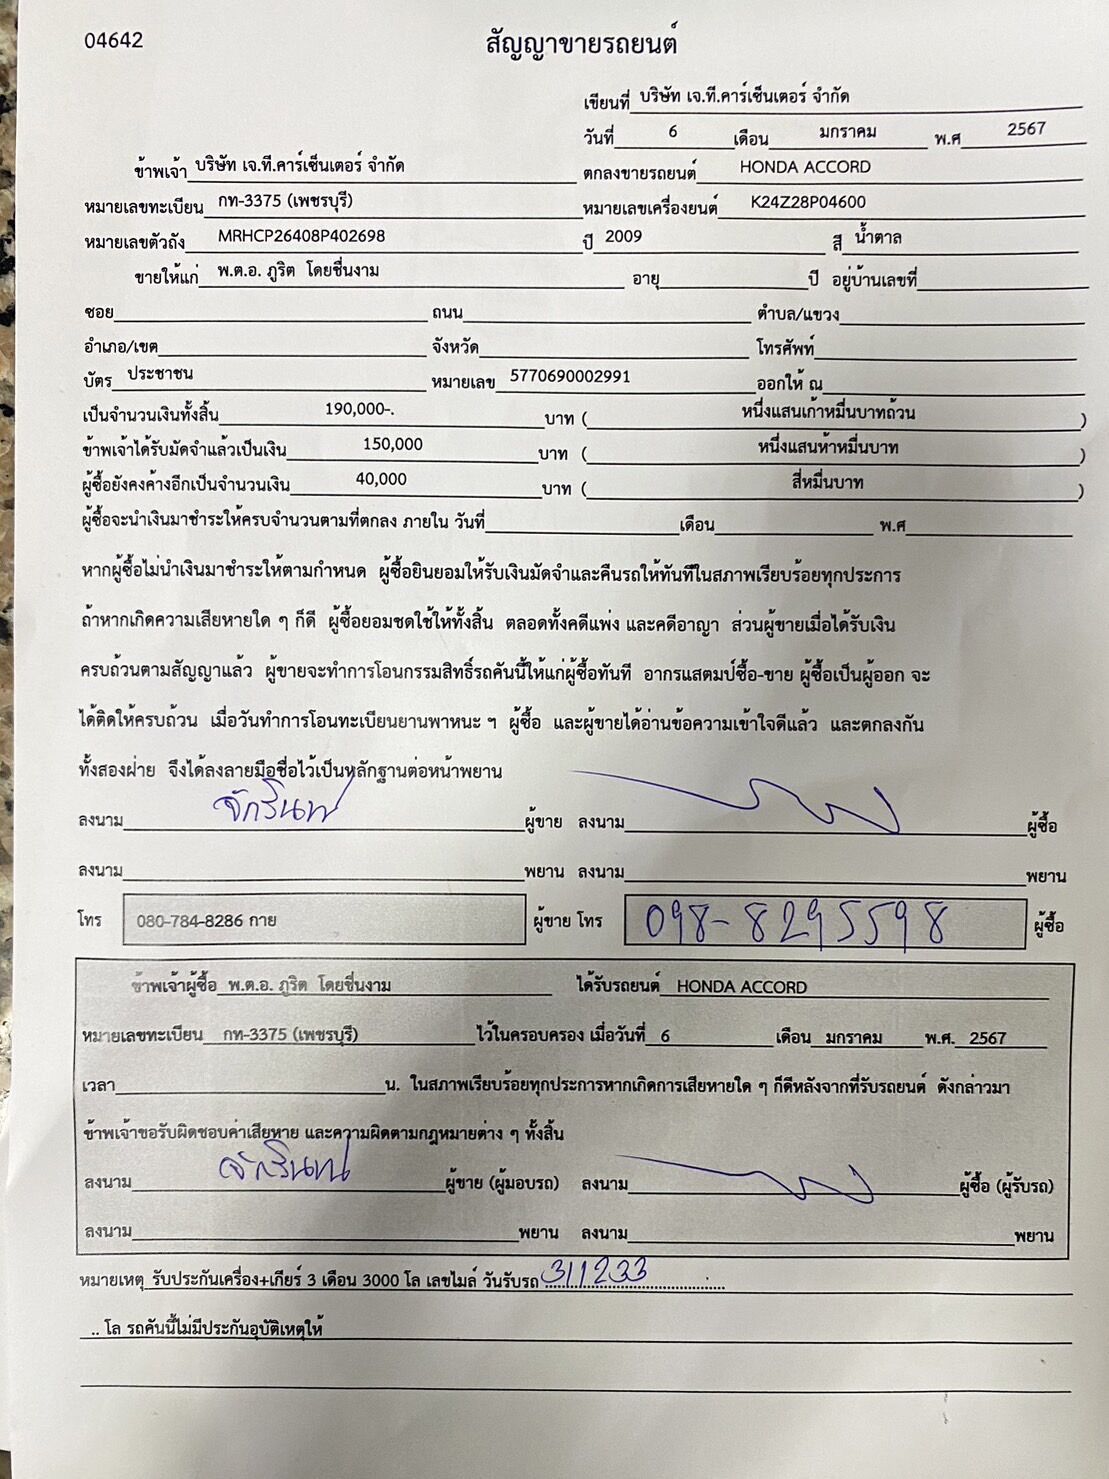 04642
สัญญาขายรถยนต์
เขียนที่ บริษัท เจ.ที.คาร์เซ็นเตอร์ จำกัด
วันที่ 6 เดือน มกราคม พ.ศ 2567
ข้าพเจ้า บริษัท เจ.ที.คาร์เซ็นเตอร์ จำกัด ตกลงขายรถยนต์ HONDA ACCORD
หมายเลขทะเบียน กท-3375 (เพชรบุรี) หมายเลขเครื่องยนต์ K24Z28P04600
หมายเลขตัวถัง MRHCP26408P402698 ปี 2009 สี น้ำตาล
ขายให้แก่ พ.ต.อ. ภูริต โดยชื่นงาม อายุ ปี อยู่บ้านเลขที่
ซอย ถนน ตำบล/แขวง
อำเภอ/เขต จังหวัด โทรศัพท์
บัตร ประชาชน หมายเลข 5770690002991 ออกให้ ณ
เป็นจำนวนเงินทั้งสิ้น 190,000-. บาท ( หนึ่งแสนเก้าหมื่นบาทถ้วน )
ข้าพเจ้าได้รับมัดจำแล้วเป็นเงิน 150,000 บาท ( หนึ่งแสนห้าหมื่นบาท )
ผู้ซื้อยังคงค้างอีกเป็นจำนวนเงิน 40,000 บาท ( สี่หมื่นบาท )
ผู้ซื้อจะนำเงินมาชำระให้ครบจำนวนตามที่ตกลง ภายใน วันที่ เดือน พ.ศ
หากผู้ซื้อไม่นำเงินมาชำระให้ตามกำหนด ผู้ซื้อยินยอมให้รับเงินมัดจำและคืนรถให้ทันทีในสภาพเรียบร้อยทุกประการ
ถ้าหากเกิดความเสียหายใด ๆ ก็ดี ผู้ซื้อยอมชดใช้ให้ทั้งสิ้น ตลอดทั้งคดีแพ่ง และคดีอาญา ส่วนผู้ขายเมื่อได้รับเงิน
ครบถ้วนตามสัญญาแล้ว ผู้ขายจะทำการโอนกรรมสิทธิ์รถคันนี้ให้แก่ผู้ซื้อทันที อากรแสตมป์ซื้อ-ขาย ผู้ซื้อเป็นผู้ออก จะ
ได้ติดให้ครบถ้วน เมื่อวันทำการโอนทะเบียนยานพาหนะ ฯ ผู้ซื้อ และผู้ขายได้อ่านข้อความเข้าใจดีแล้ว และตกลงกัน
ทั้งสองฝ่าย จึงได้ลงลายมือชื่อไว้เป็นหลักฐานต่อหน้าพยาน
ลงนาม จักรินทร์ ผู้ขาย ลงนาม ผู้ซื้อ
ลงนาม พยาน ลงนาม พยาน
โทร 080-784-8286 กาย ผู้ขาย โทร 098-8295598 ผู้ซื้อ
ข้าพเจ้าผู้ซื้อ พ.ต.อ. ภูริต โดยชื่นงาม ได้รับรถยนต์ HONDA ACCORD
หมายเลขทะเบียน กท-3375 (เพชรบุรี) ไว้ในครอบครอง เมื่อวันที่ 6 เดือน มกราคม พ.ศ. 2567
เวลา น. ในสภาพเรียบร้อยทุกประการหากเกิดการเสียหายใด ๆ ก็ดีหลังจากที่รับรถยนต์ ดังกล่าวมา
ข้าพเจ้าขอรับผิดชอบค่าเสียหาย และความผิดตามกฎหมายต่าง ๆ ทั้งสิ้น
ลงนาม จักรินทร์ ผู้ขาย (ผู้มอบรถ) ลงนาม ผู้ซื้อ (ผู้รับรถ)
ลงนาม พยาน ลงนาม พยาน
หมายเหตุ รับประกันเครื่อง+เกียร์ 3 เดือน 3000 โล เลขไมล์ วันรับรถ 311233
.. โล รถคันนี้ไม่มีประกันอุบัติเหตุให้